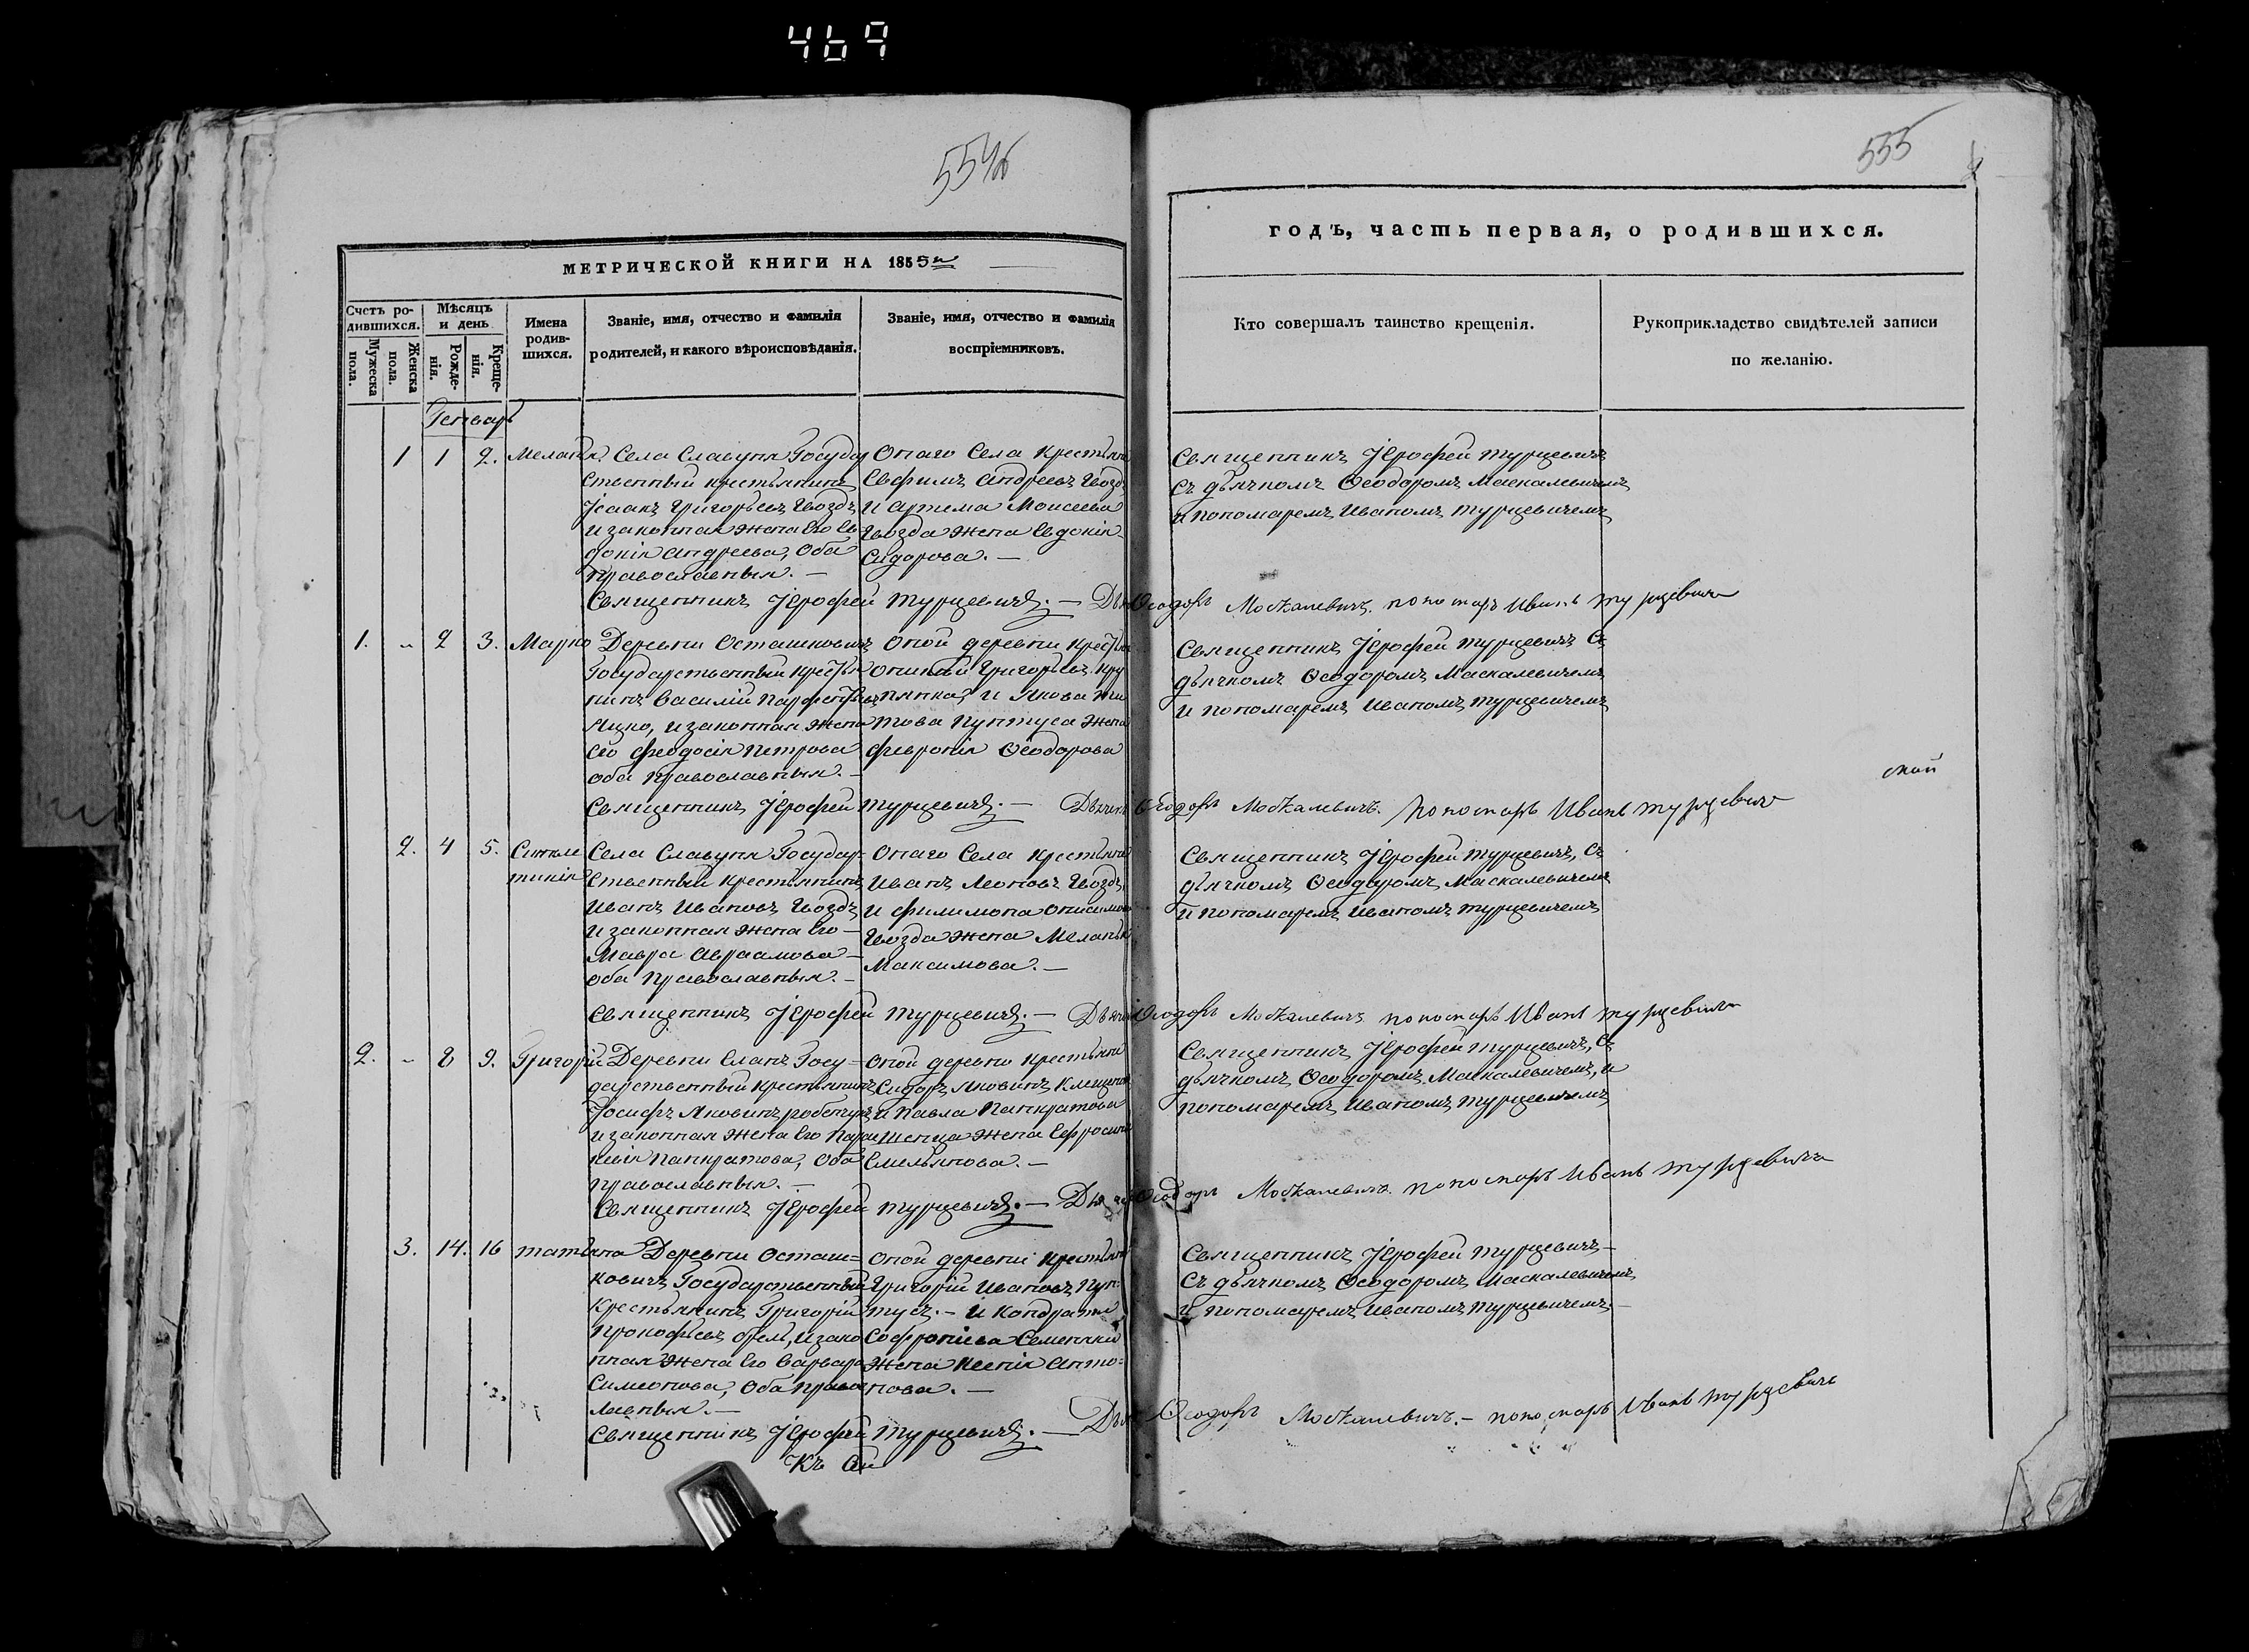 469
554об
555
МЕТРИЧЕСКОЙ КНИГИ НА 1855й
годъ, часть первая, о родившихся.
Счетъ родившихся.
Мужеска пола.
Женска пола.
Мѣсяцъ и день
Рожденія.
Крещенія.
Имена родившихся.
Званіе, имя, отчество и фамилія
родителей, и какого вѣроисповѣданія.
Званіе, имя, отчество и фамилія
воспріемниковъ.
Кто совершалъ таинство крещенія.
Рукоприкладство свидѣтелей записи
по желанію.
Генварь
1 1 2. Меланія
Села Славуня Государ
ственный крестьянинъ
Ісаакъ Григорьевъ Гвоздъ
и законная жена его Ев
докія Андреева, оба
православныя. —
Онаго Села крестьяни
Евфимъ Андреевъ Гвозд
и Артема Моисеева
Гвозда жена Евдокія
Сидорова. —
Священникъ Іерофей Турцевичъ
съ дьячкомъ Ѳеодоромъ Маскалевичемъ
и пономаремъ Иваномъ Турцевичемъ
Священникъ Іерофей Турцевичъ. — Дья Ѳеодоръ Москалевичъ. пономарь Иванъ Турцевичъ
1. „ 2 3. Марко
Деревни Осташковичъ
Государственный кресть
нинъ Василій Парфеньевъ
Яцко, и законная жена
его Феодосія Петрова
оба православныя. —
Оной деревни крестьян
Григорьевъ Кру
пянка, и Якова Ти
това Пунтуса жена
Феврония Ѳеодорова
Священникъ Іерофей Турцевичъ съ
дьячкомъ Ѳеодоромъ Маскалевичемъ
и пономаремъ Иваномъ Турцевичемъ
ской
Священникъ Іерофей Турцевичъ. — Дьячекъ Ѳеодоръ Москалевичъ. Пономарь Иванъ Турцевичъ
2. 4 5. Синкле
тикія
Села Славуня Государ-
ственный крестьянинъ
Иванъ Ивановъ Гвоздъ
и законная жена его —
Мавра Авраамова —
оба православныя. —
Онаго Села крестьяни
Иванъ Леоновъ Гвоздъ,
и Филимона Онисимова
Гвозда жена Меланія
Максимова. —
Священникъ Іерофей Турцевичъ, съ
дьячкомъ Ѳеодоромъ Маскалевичемъ
и пономаремъ Иваномъ Турцевичемъ
Священникъ Іерофей Турцевичъ. — Дьячекъ Ѳеодоръ Москалевичъ пономарь Иванъ Турцевичъ
2. „ 8 9. Григорій
Деревни Сланъ Госу=
дарственный крестьянинъ
Іосифъ Яковинъ
и законная жена его Парас
кевія Панкратова, оба
православныя. —
Оной деревни крестьяни
Сидоръ Яковинъ
и Павла Панкратова
жена Евфросинія
Емельянова. —
Священникъ Іерофей Турцевичъ, съ
дьячкомъ Ѳеодоромъ Маскалевичемъ, и
пономаремъ Иваномъ Турцевичемъ
Священникъ Іерофей Турцевичъ. — Дьячекъ Ѳеодоръ Москалевичъ. пономарь Иванъ Турцевичъ
3. 14. 16 Татьяна
Деревни Осташ=
ковичъ Государственный
крестьянинъ Григорій
Прокофьевъ Орелъ, и зако
нная жена его Варвара
Симеонова, оба право
лавныя. —
Оной деревни крестьяни
Григорій Ивановъ Пун-
тусъ. — и Кондратія
Софроніева Семеняки
жена Ксенія Анто=
нова. —
Священникъ Іерофей Турцевичъ —
съ дьячкомъ Ѳеодоромъ Маскалевичемъ
и пономаремъ Иваномъ Турцевичемъ. —
Священникъ Іерофей Турцевичъ. — Дья Ѳеодоръ Москалевичъ. — пономарь Иванъ Турцевичъ
Къ сей